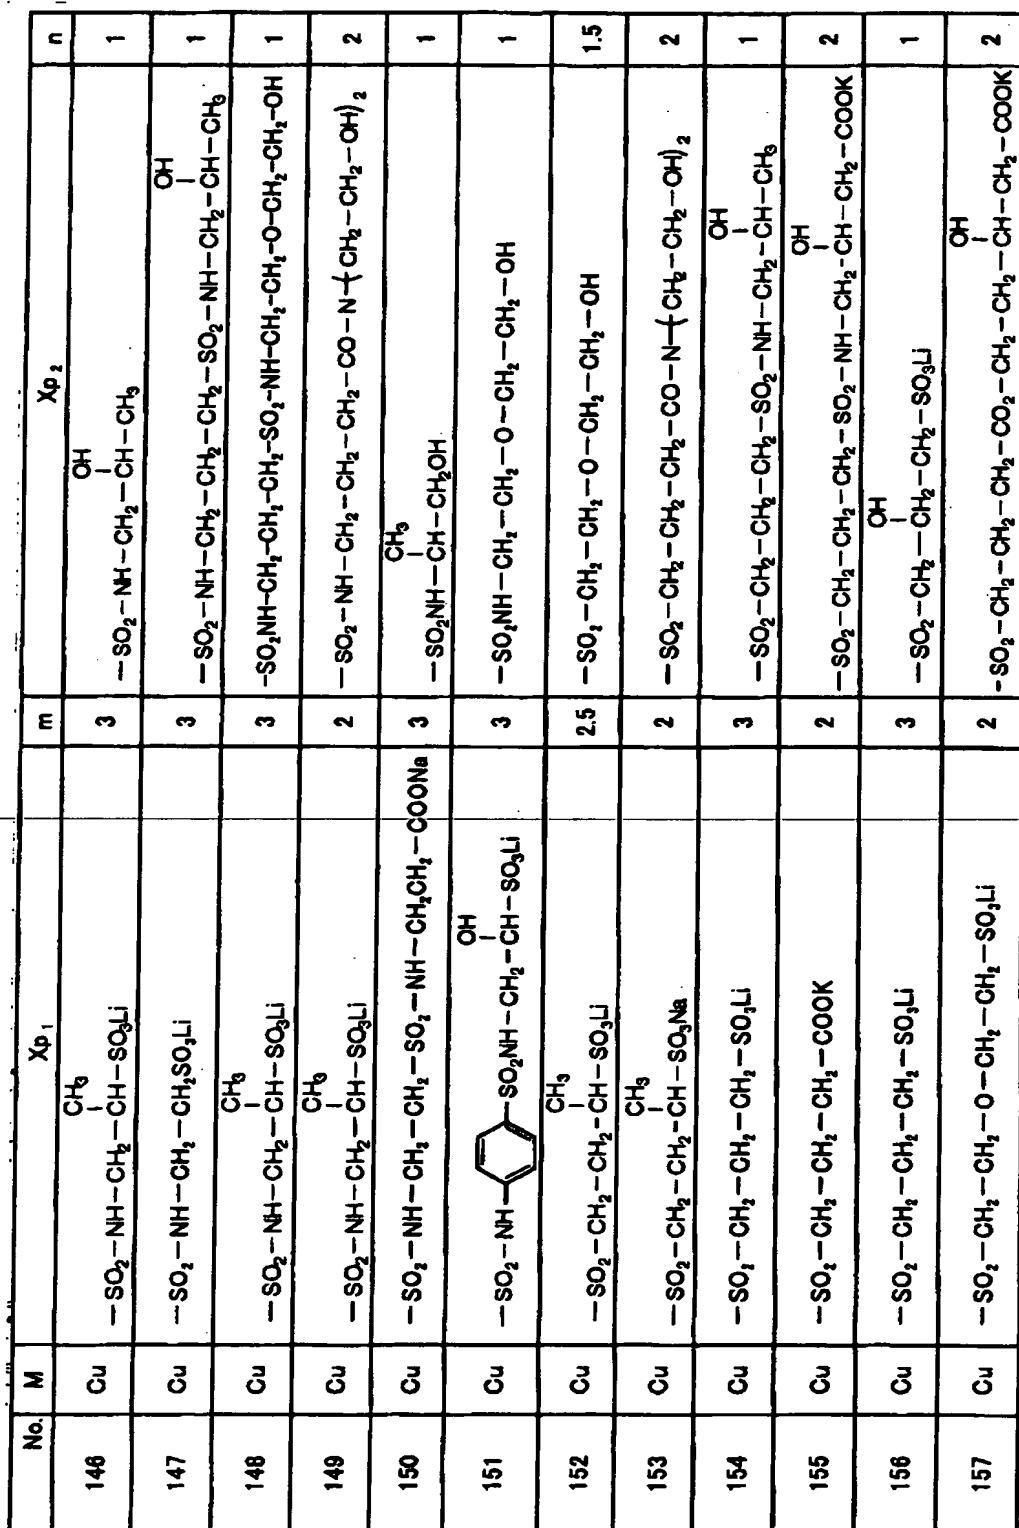 No. M Xp₁ m Xp₂ n
CH₃ OH
146 Cu —SO₂—NH—CH₂—CH—SO₃Li 3 —SO₂—NH—CH₂—CH—CH₃ 1
OH
147 Cu —SO₂—NH—CH₂—CH₂SO₃Li 3 —SO₂—NH—CH₂—CH₂—CH₂—SO₂—NH—CH₂—CH—CH₃ 1
CH₃
148 Cu —SO₂—NH—CH₂—CH—SO₃Li 3 -SO₂NH-CH₂-CH₂-CH₂-SO₂-NH-CH₂-CH₂-O-CH₂-CH₂-OH 1
CH₃
149 Cu —SO₂—NH—CH₂—CH—SO₃Li 2 —SO₂—NH—CH₂—CH₂—CH₂—CO—N—(CH₂—CH₂—OH)₂ 2
CH₃
150 Cu —SO₂—NH—CH₂—CH₂—SO₂—NH—CH₂CH₂—COONa 3 —SO₂NH—CH—CH₂OH 1
OH
151 Cu —SO₂—NH— —SO₂NH—CH₂—CH—SO₃Li 3 —SO₂NH—CH₂—CH₂—O—CH₂—CH₂—OH 1
CH₃
152 Cu —SO₂—CH₂—CH₂—CH—SO₃Li 2.5 —SO₂—CH₂—CH₂—O—CH₂—CH₂—OH 1.5
CH₃
153 Cu —SO₂—CH₂—CH₂—CH—SO₃Na 2 —SO₂—CH₂—CH₂—CH₂—CO—N—(CH₂—CH₂—OH)₂ 2
OH
154 Cu —SO₂—CH₂—CH₂—CH₂—SO₃Li 3 —SO₂—CH₂—CH₂—CH₂—SO₂—NH—CH₂—CH—CH₃ 1
OH
155 Cu —SO₂—CH₂—CH₂—CH₂—COOK 2 —SO₂—CH₂—CH₂—CH₂—SO₂—NH—CH₂—CH—CH₂—COOK 2
OH
156 Cu —SO₂—CH₂—CH₂—CH₂—SO₃Li 3 —SO₂—CH₂—CH₂—CH₂—SO₃Li 1
OH
157 Cu —SO₂—CH₂—CH₂—O—CH₂—CH₂—SO₃Li 2 -SO₂-CH₂-CH₂-CH₂-CO₂-CH₂-CH₂-CH-CH₂-COOK 2